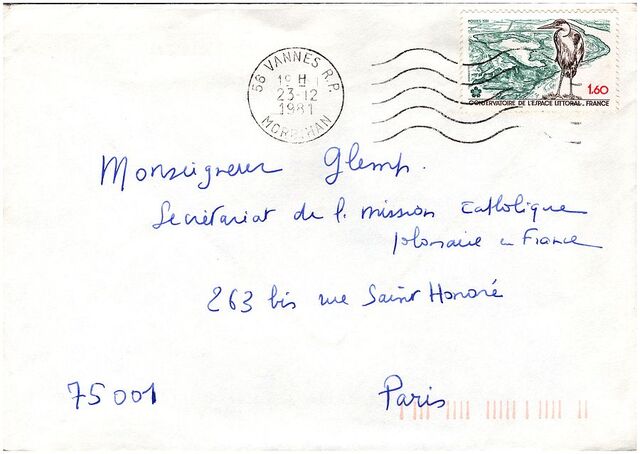 58 VANNES R.P.
19 H
23-12
1981
MORBIHAN
POSTES 1981
1.60
CONSERVATOIRE DE L'ESPACE LITTORAL. FRANCE
Monseigneur Glemp.
Secrétariat de l. mission Catholique
polonaise en France
263 bis rue Saint Honoré
75001 Paris